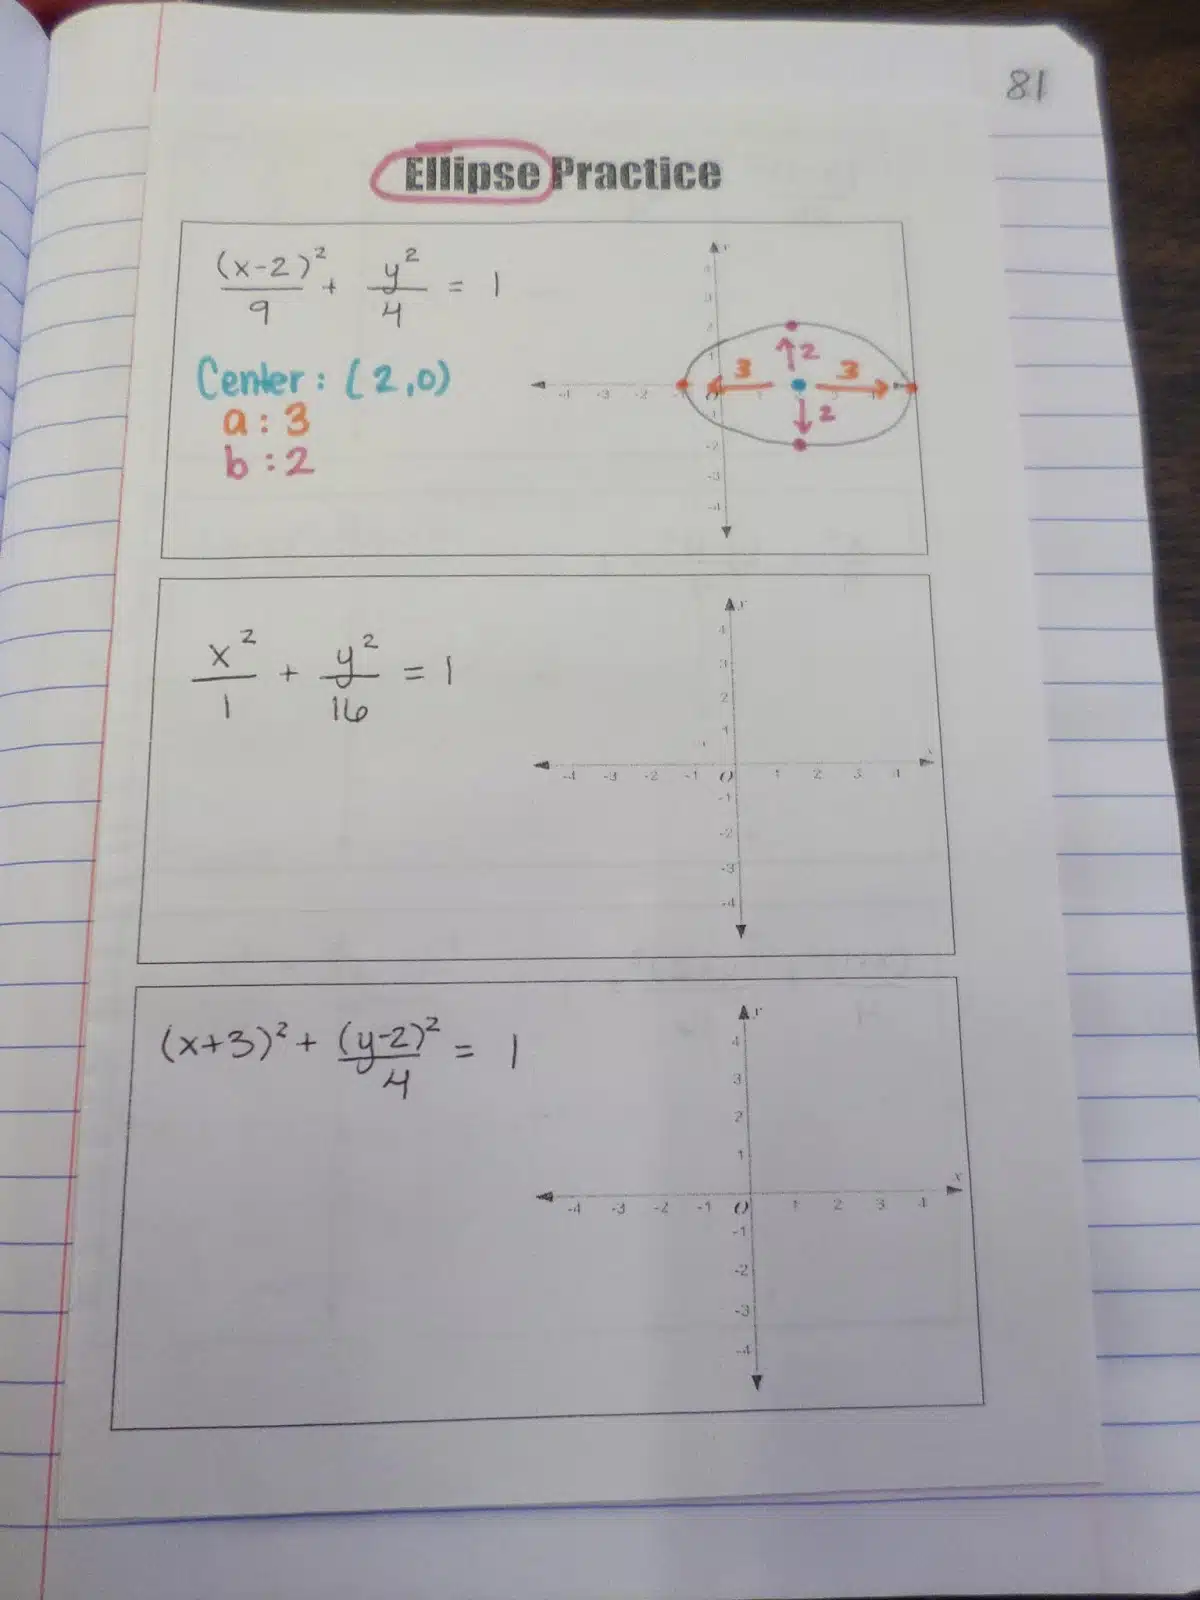 81
Ellipse Practice
(x-2)²/9 + y²/4 = 1
Center: (2,0)
a: 3
b: 2
y
2
3 3
-4 -3 -2 -1 O
2
-2
-3
-4
x²/1 + y²/16 = 1
y
4
3
2
1
-4 -3 -2 -1 O 1 2 3 4
-1
-2
-3
-4
(x+3)² + (y-2)²/4 = 1
y
4
3
2
1
x
-4 -3 -2 -1 O 1 2 3 4
-1
-2
-3
-4